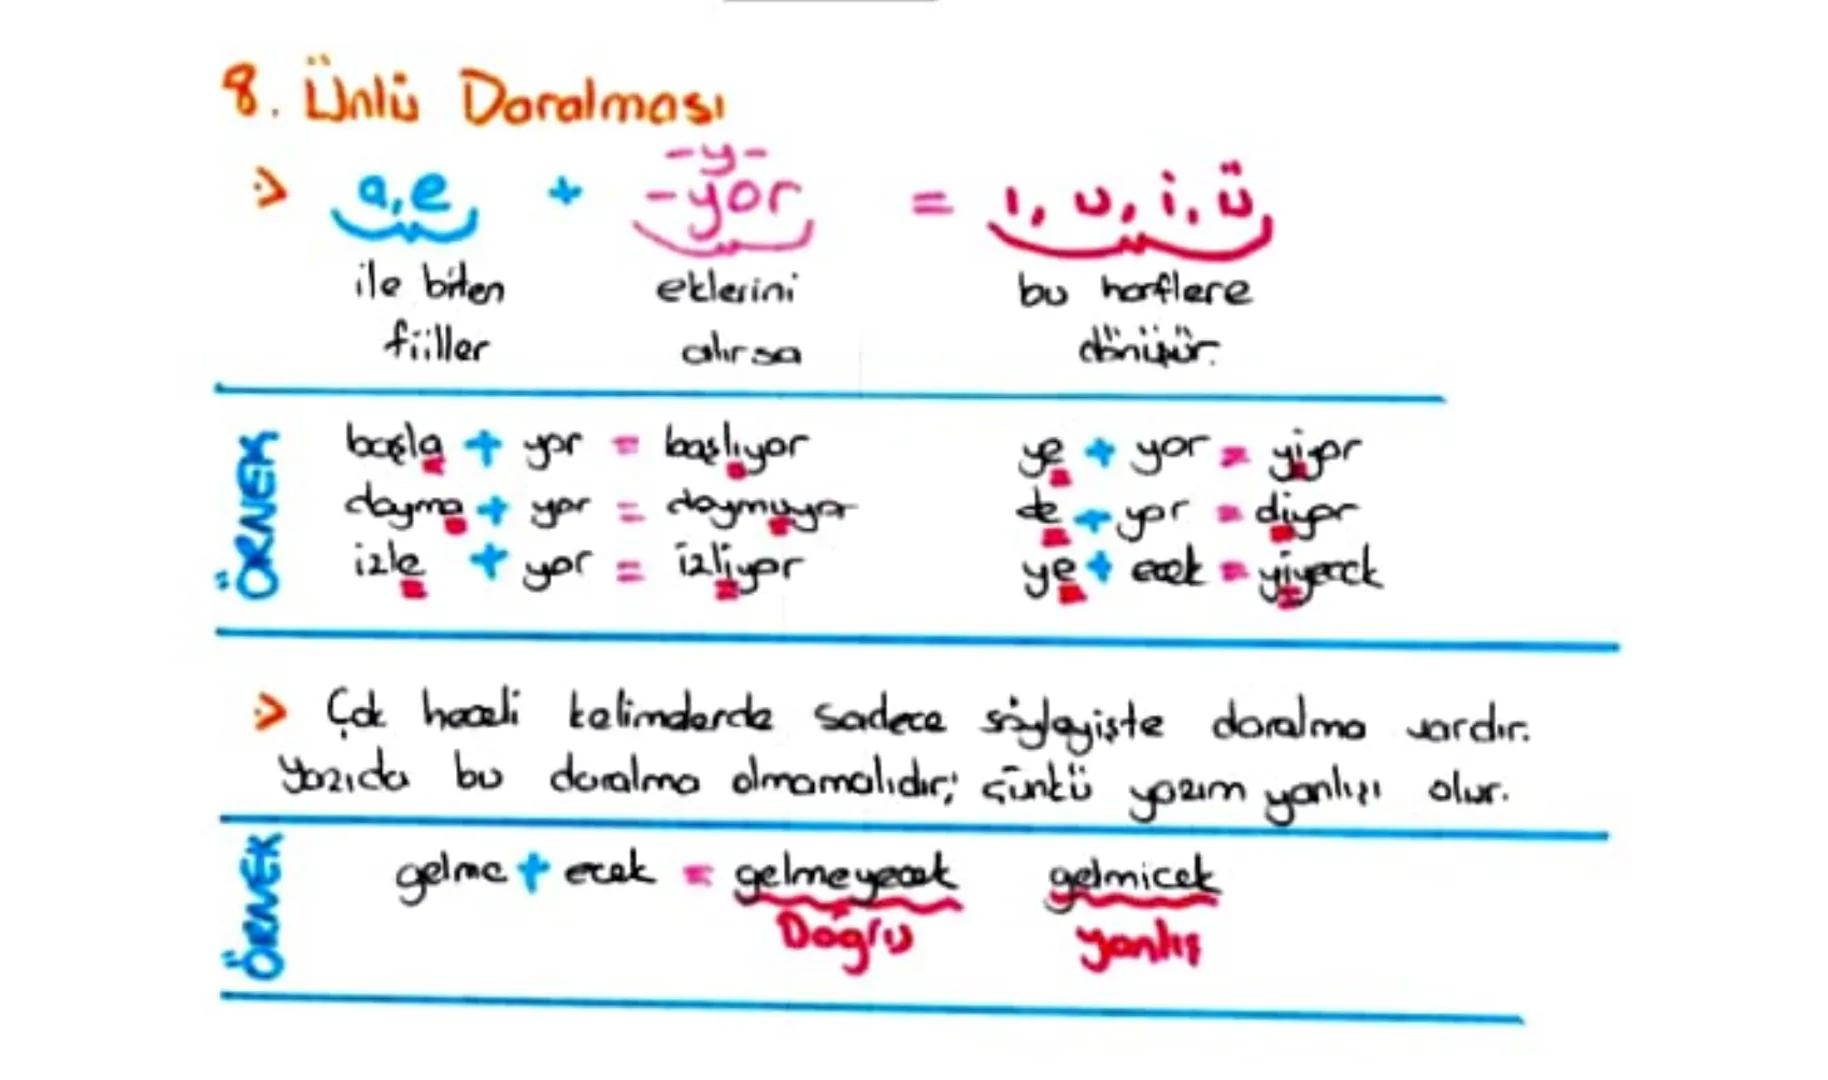 8. Ünlü Daralması
-y-
:> a,e + -yor = ı, u, i, ü
ile biten eklerini bu harflere
fiiller alırsa dönüşür.
ÖRNEK
başla + yor = başlıyor ye + yor = yiyor
doyma + yor = doymuyor de + yor = diyor
izle + yor = izliyor ye + ecek = yiyecek
:> Çok heceli kelimelerde sadece söyleyişte daralma vardır.
Yazıda bu daralma olmamalıdır; çünkü yazım yanlışı olur.
ÖRNEK
gelme + ecek = gelmeyecek gelmicek
Doğru yanlış